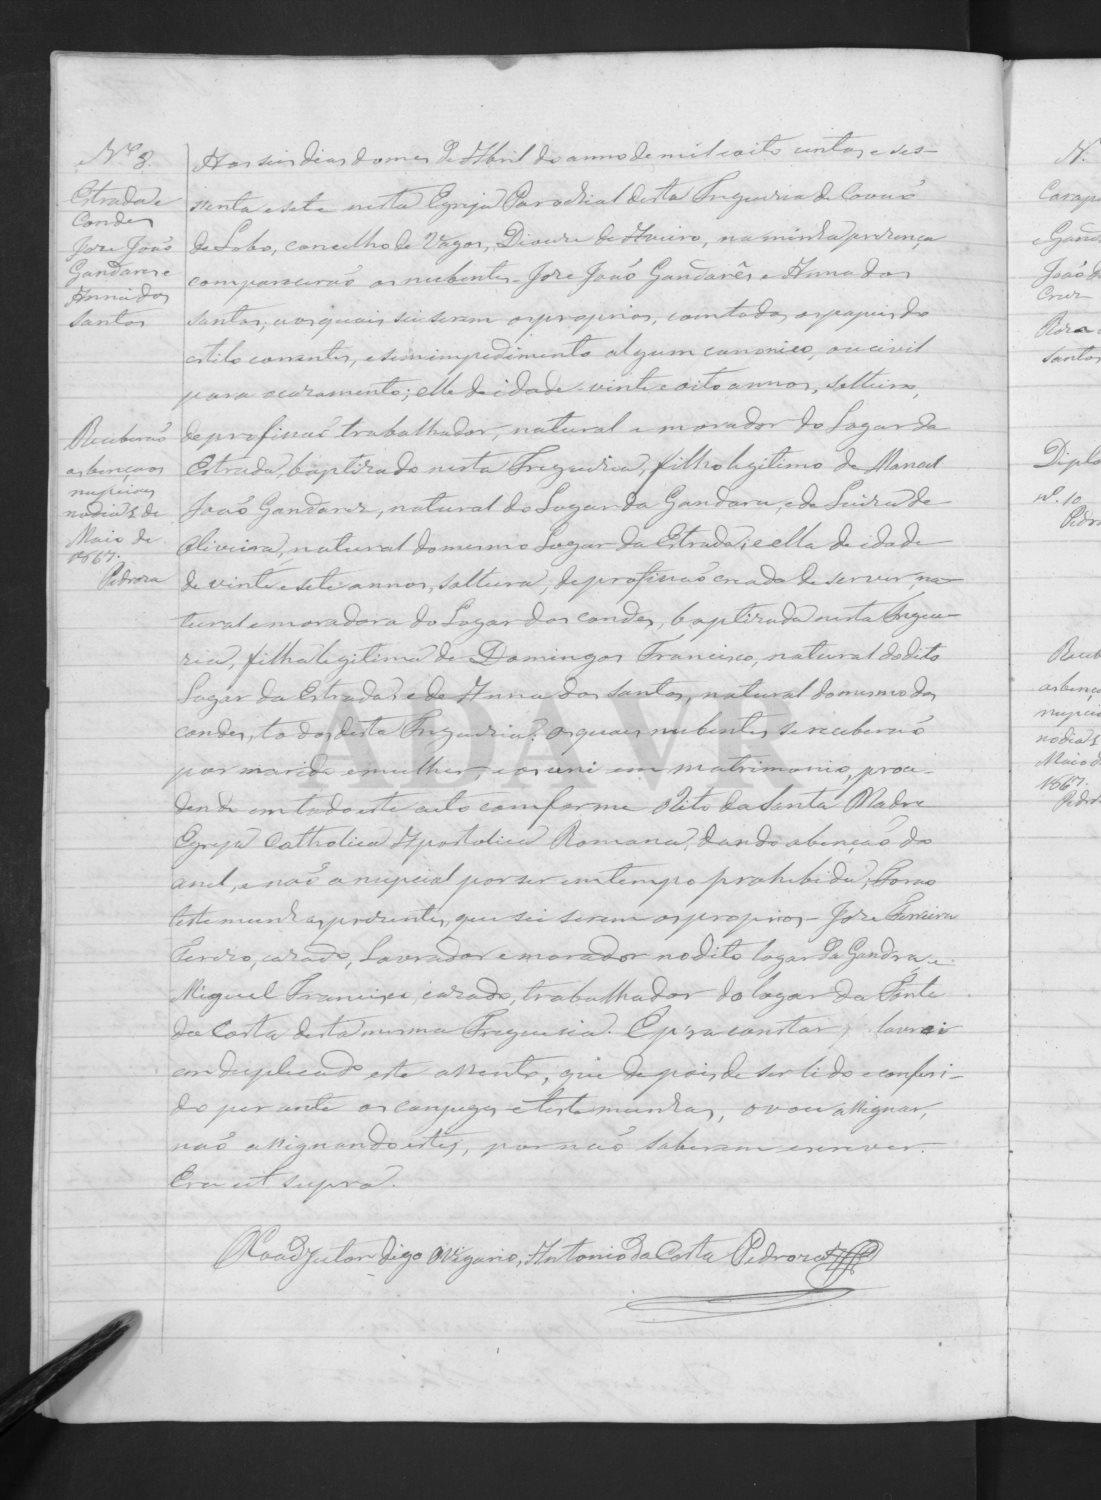 Nº 3.
Estrada e
Condes
Jose João
Gandarez e
Anna dos
Santos
Receberão
as bençaos
nupciaes
no dia 1 de
Maio de
1867.
Pedroza
Aos seis dias do mes de Abril do anno de mil oito centos e ses-
senta e sete nesta Egreja Parochial desta Freguezia de Covaõ
de Lobo, concelho de Vagos, Diocese de Aveiro, na minha presença
comparecerão os nubentes - Jose João Gandarês e Anna dos
Santos, os quais sei serem os proprios, com todos os papeis do
estilo correntes, e sem impedimento algum canonico, ou civil
para o cazamento; elle de idade vinte e oito annos, solteiro,
de profissaõ trabalhador, natural e morador do Lugar da
Estrada, baptizado nesta Freguezia, filho legitimo de Manoel
João Gandarez, natural do Lugar da Gandara, e de Luiza de
Oliveira, natural do mesmo Lugar da Estrada; e ella de idade
de vinte e sete annos, solteira, de profissaõ creada de servir, na-
tural e moradora do Lugar dos Condes, baptizada nesta Fregue-
zia, filha legitima de Domingos Francisco, natural do dito
Lugar da Estrada, e de Anna dos Santos, natural do mesmo dos
Condes, todos desta Freguezia: os quaes nubentes se receberaõ
por marido e mulher, e os uni em matrimonio, proce-
dendo em todo este acto comforme o Rito da Santa Madre
Egreja Catholica Apostolica Romana, dando a bençaõ do
anel, e naõ a nupcial por ser em tempo prohibido; Foraõ
testemunhas prezentes, que sei serem os proprios - Joze Ferreira
, cazado, Lavrador e morador no dito lugar da Gandra, e
Miguel Francisco, cazado, trabalhador do lugar da Fonte
da Costa desta mesma Freguesia. E p.ra constar lavrei
em duplicado este assento, que depois de ser lido e conferi-
do perante os conjuges e testemunhas, o vou assignar,
naõ assignando estes, por naõ saberem escrever.
Era ut supra.
O Coadjutor digo O Vigario, Antonio da Costa Pedroza
ADAVR
N.
Gand
João d
Cruz
Roza
Santos
Diplo
nº. 10
Pedro
Receb
as benç
nupcia
no dia 1
Maio d
1867.
Pedro